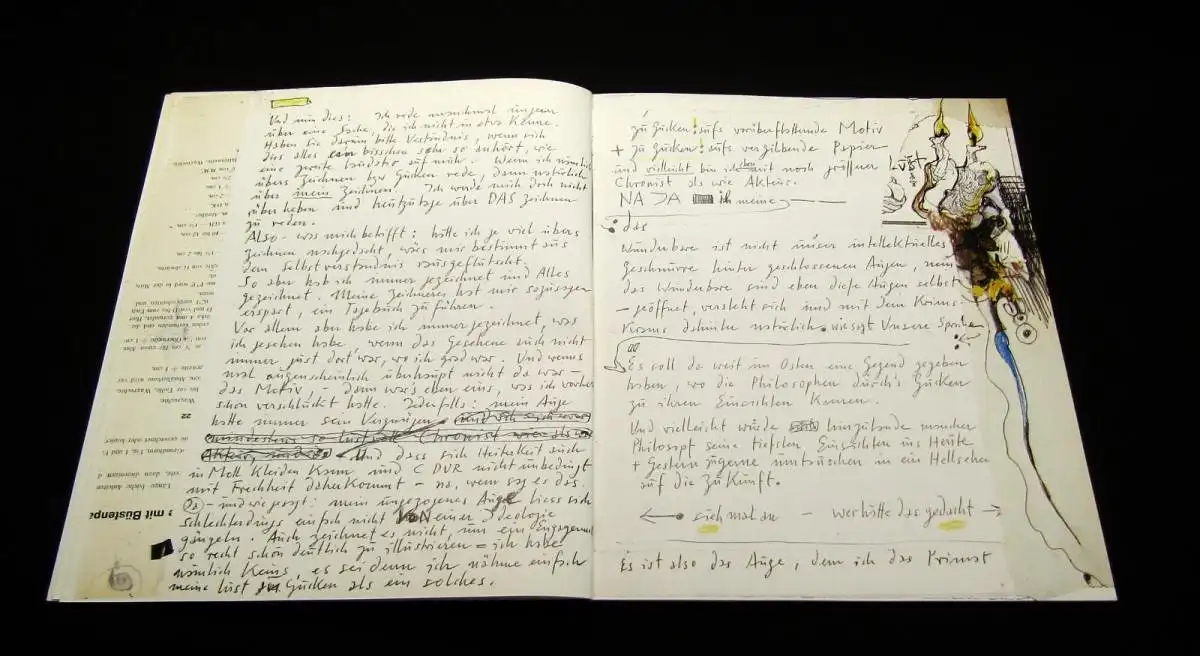 Und nun dies: Ich rede manchmal ungern
über eine Sache, die ich nicht in etwa Kenne.
Haben Sie darum bitte Verständnis, wenn sich
dies alles ein bisschen sehr so anhört, wie
eine zweite Laudatio auf mich. Wenn ich nämlich
übers Zeichnen bzw Gucken rede, dann natürlich
über mein Zeichnen. Ich würde mich doch nicht
überheben und heutzutage über DAS zeichnen
zu reden.
Also – was mich betifft: hätte ich je viel übers
zeichnen nachgedacht, wärs mir bestimmt aus
dem Selbstverständnis rausgeflutscht.
So aber hab ich immer gezeichnet und Alles
gezeichnet. Meine Zeichnerei hat mir sozusagen
erspart, ein Tagebuch zu führen.
Vor allem aber habe ich immer gezeichnet, was
ich gesehen habe wenn das Gesehene auch nicht
immer just dort war, wo ich grad war. Und wenns
mal augenscheinlich überhaupt nicht da war –
das Motiv –, dann war's eben eins, was ich vorher
schon verschluckt hatte. Jedenfalls: mein Auge
hatte immer sein Vergnügen
Und dass sich Heiterkeit auch
in Moll Kleiden Kann und C DUR nicht unbedingt
mit Frechheit daherkommt – na, wem sag ich das.
da – und wie gesagt: mein ungezogenes Auge liess sich
schlechterdings einfach nicht VON einer Ideologie
gängeln. Auch zeichnet es nicht, um ein Engagement
so recht schön deutlich zu illustrieren = ich habe
nämlich Keins, es sei denn ich nähme einfach
meine Lust zu Gucken als ein solches.
22
mit Büstenpa
zu Gucken! aufs vorüberflatternde Motiv
+ zu Gucken! aufs vergilbende Papier
und vielleicht bin ich eben mit noch grössrer
Chronist als wie Akteur.
NA JA ich meine
das
Wunderbare ist nicht unser intellektuelles
Geschnürre hinter geschlossenen Augen, nein
das Wunderbare sind eben diese Augen selbst
– geöffnet, versteht sich und mit dem Krims-
Krams dahinter natürlich. wie sagt Unsere Sprache
Es soll da weit im Osten eine Gegend gegeben
haben, wo die Philosophen durch's Gucken
zu ihren Einsichten Kamen.
Und vielleicht würde hinzulande mancher
Philosoph seine tiefsten Einsichten ins Heute
+ Gestern zugerne umtauschen in ein Hellsehen
auf die Zukunft.
sieh mal an – wer hätte das gedacht
Es ist also das Auge, dem ich das Primat